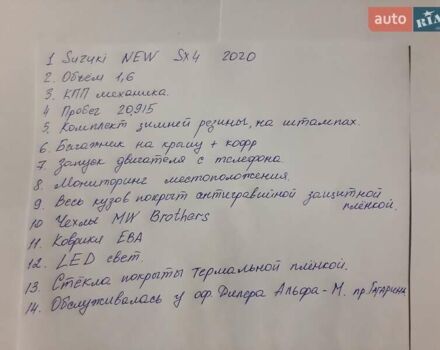 auto RIA
1 Suzuki NEW SX4 2020
2. Объём 1,6
3. КПП механика.
4 Пробег 20,915
5. Комплект зимней резины, на штампах.
6. Багажник на крышу + кофр
7. Запуск двигателя с телефона
8. Мониторинг местоположения.
9. Весь кузов покрыт антигравийной защитной
плёнкой.
10 Чехлы MW Brothers
11. Коврики ЕВА
12. LED свет.
13. Стёкла покрыты термальной плёнкой.
14. Обслуживалась у оф. Дилера Альфа-М. пр. Гагарина